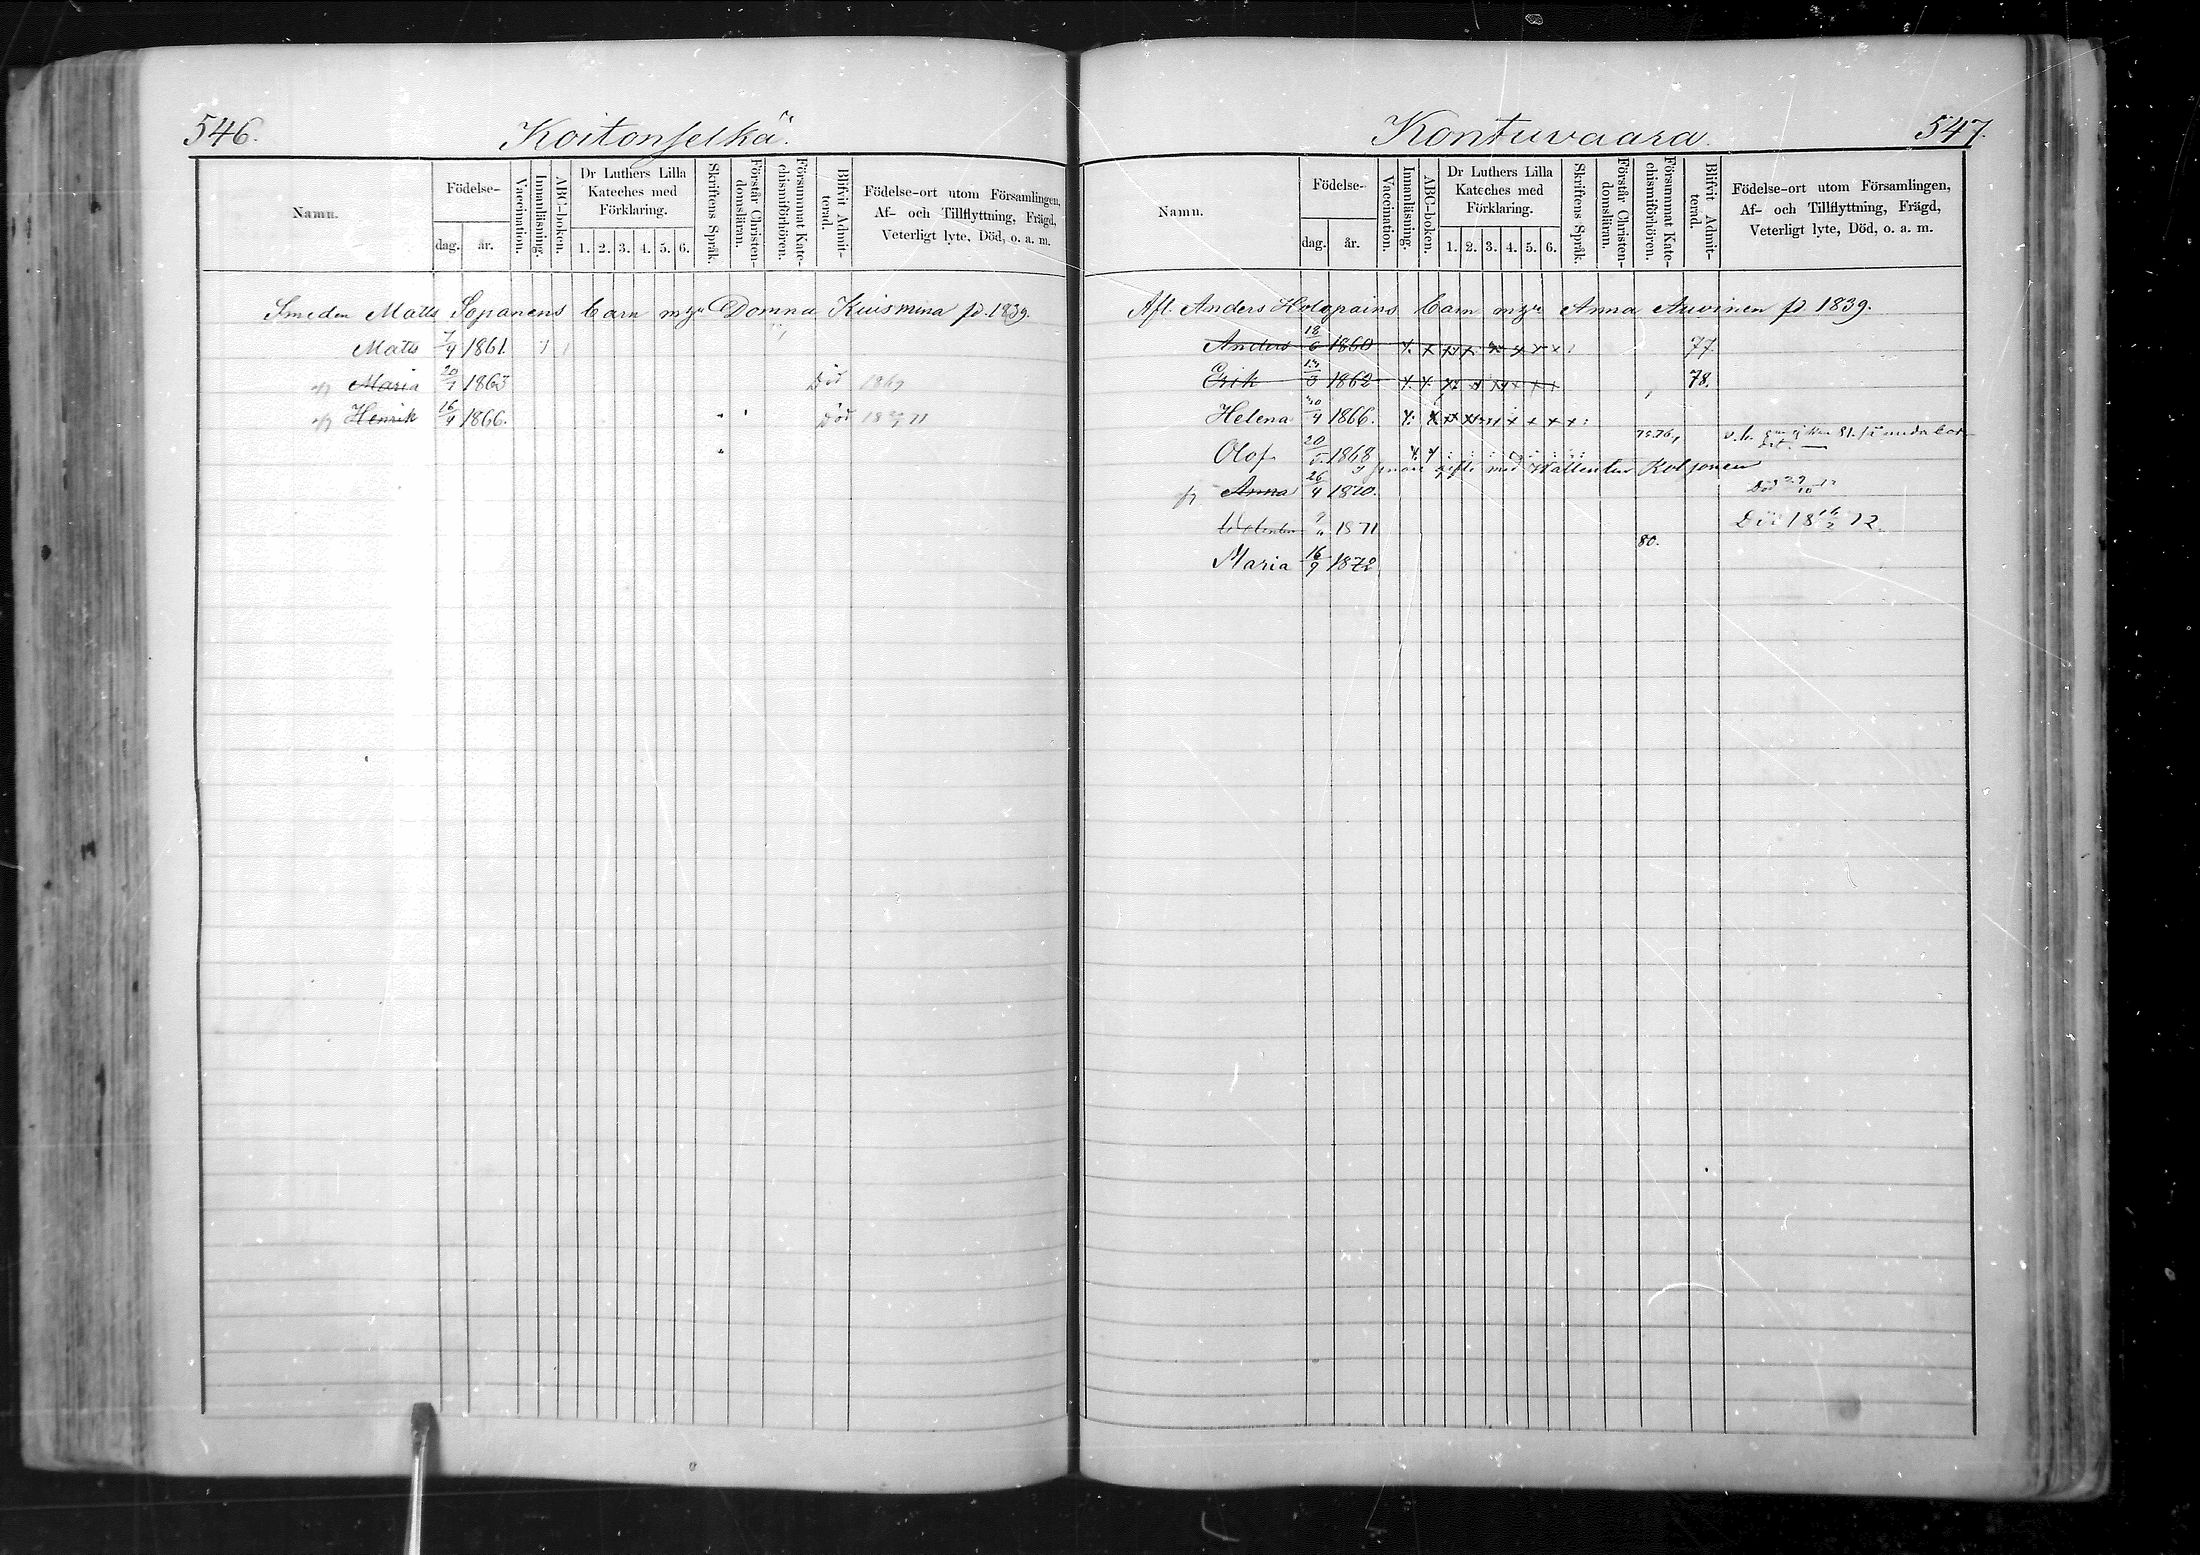 546.
Koitonselkä.
Namn.
Födelse-
dag. år.
Vaccination.
Innanläsning.
ABC-boken.
Dr Luthers Lilla Kateches med Förklaring.
1. 2. 3. 4. 5. 6.
Skriftens Språk.
Förstår Christendomsläran.
Försummat Katechismiförhören.
Blifvit Admitterad.
Födelse-ort utom Församlingen,
Af- och Tillflyttning, Frägd,
Veterligt lyte, Död, o. a. m.
Smeden Matts Sopanens barn Domna Kuismina fd. 1839.
Matts 7/4 1861.
Maria 20/7 1863 Död 1869
Henrik 16/4 1866. Död
547.
Kontuvaara.
Namn.
Födelse-
dag. år.
Vaccination.
Innanläsning.
ABC-boken.
Dr Luthers Lilla Kateches med Förklaring.
1. 2. 3. 4. 5. 6.
Skriftens Språk.
Förstår Christendomsläran.
Försummat Katechismiförhören.
Blifvit Admitterad.
Födelse-ort utom Församlingen,
Af- och Tillflyttning, Frägd,
Veterligt lyte, Död, o. a. m.
Afl. Anders Holopains barn Anna Auvinen fd. 1839.
Anders 18/6 1860 77.
Erik 1862 78.
Helena 30/4 1866.
Olof 20/5 1868 75.76,
gift med Kolponen
Anna 26/4 1870. Död
1871 Död 12.
80.
Maria 16/9 1872